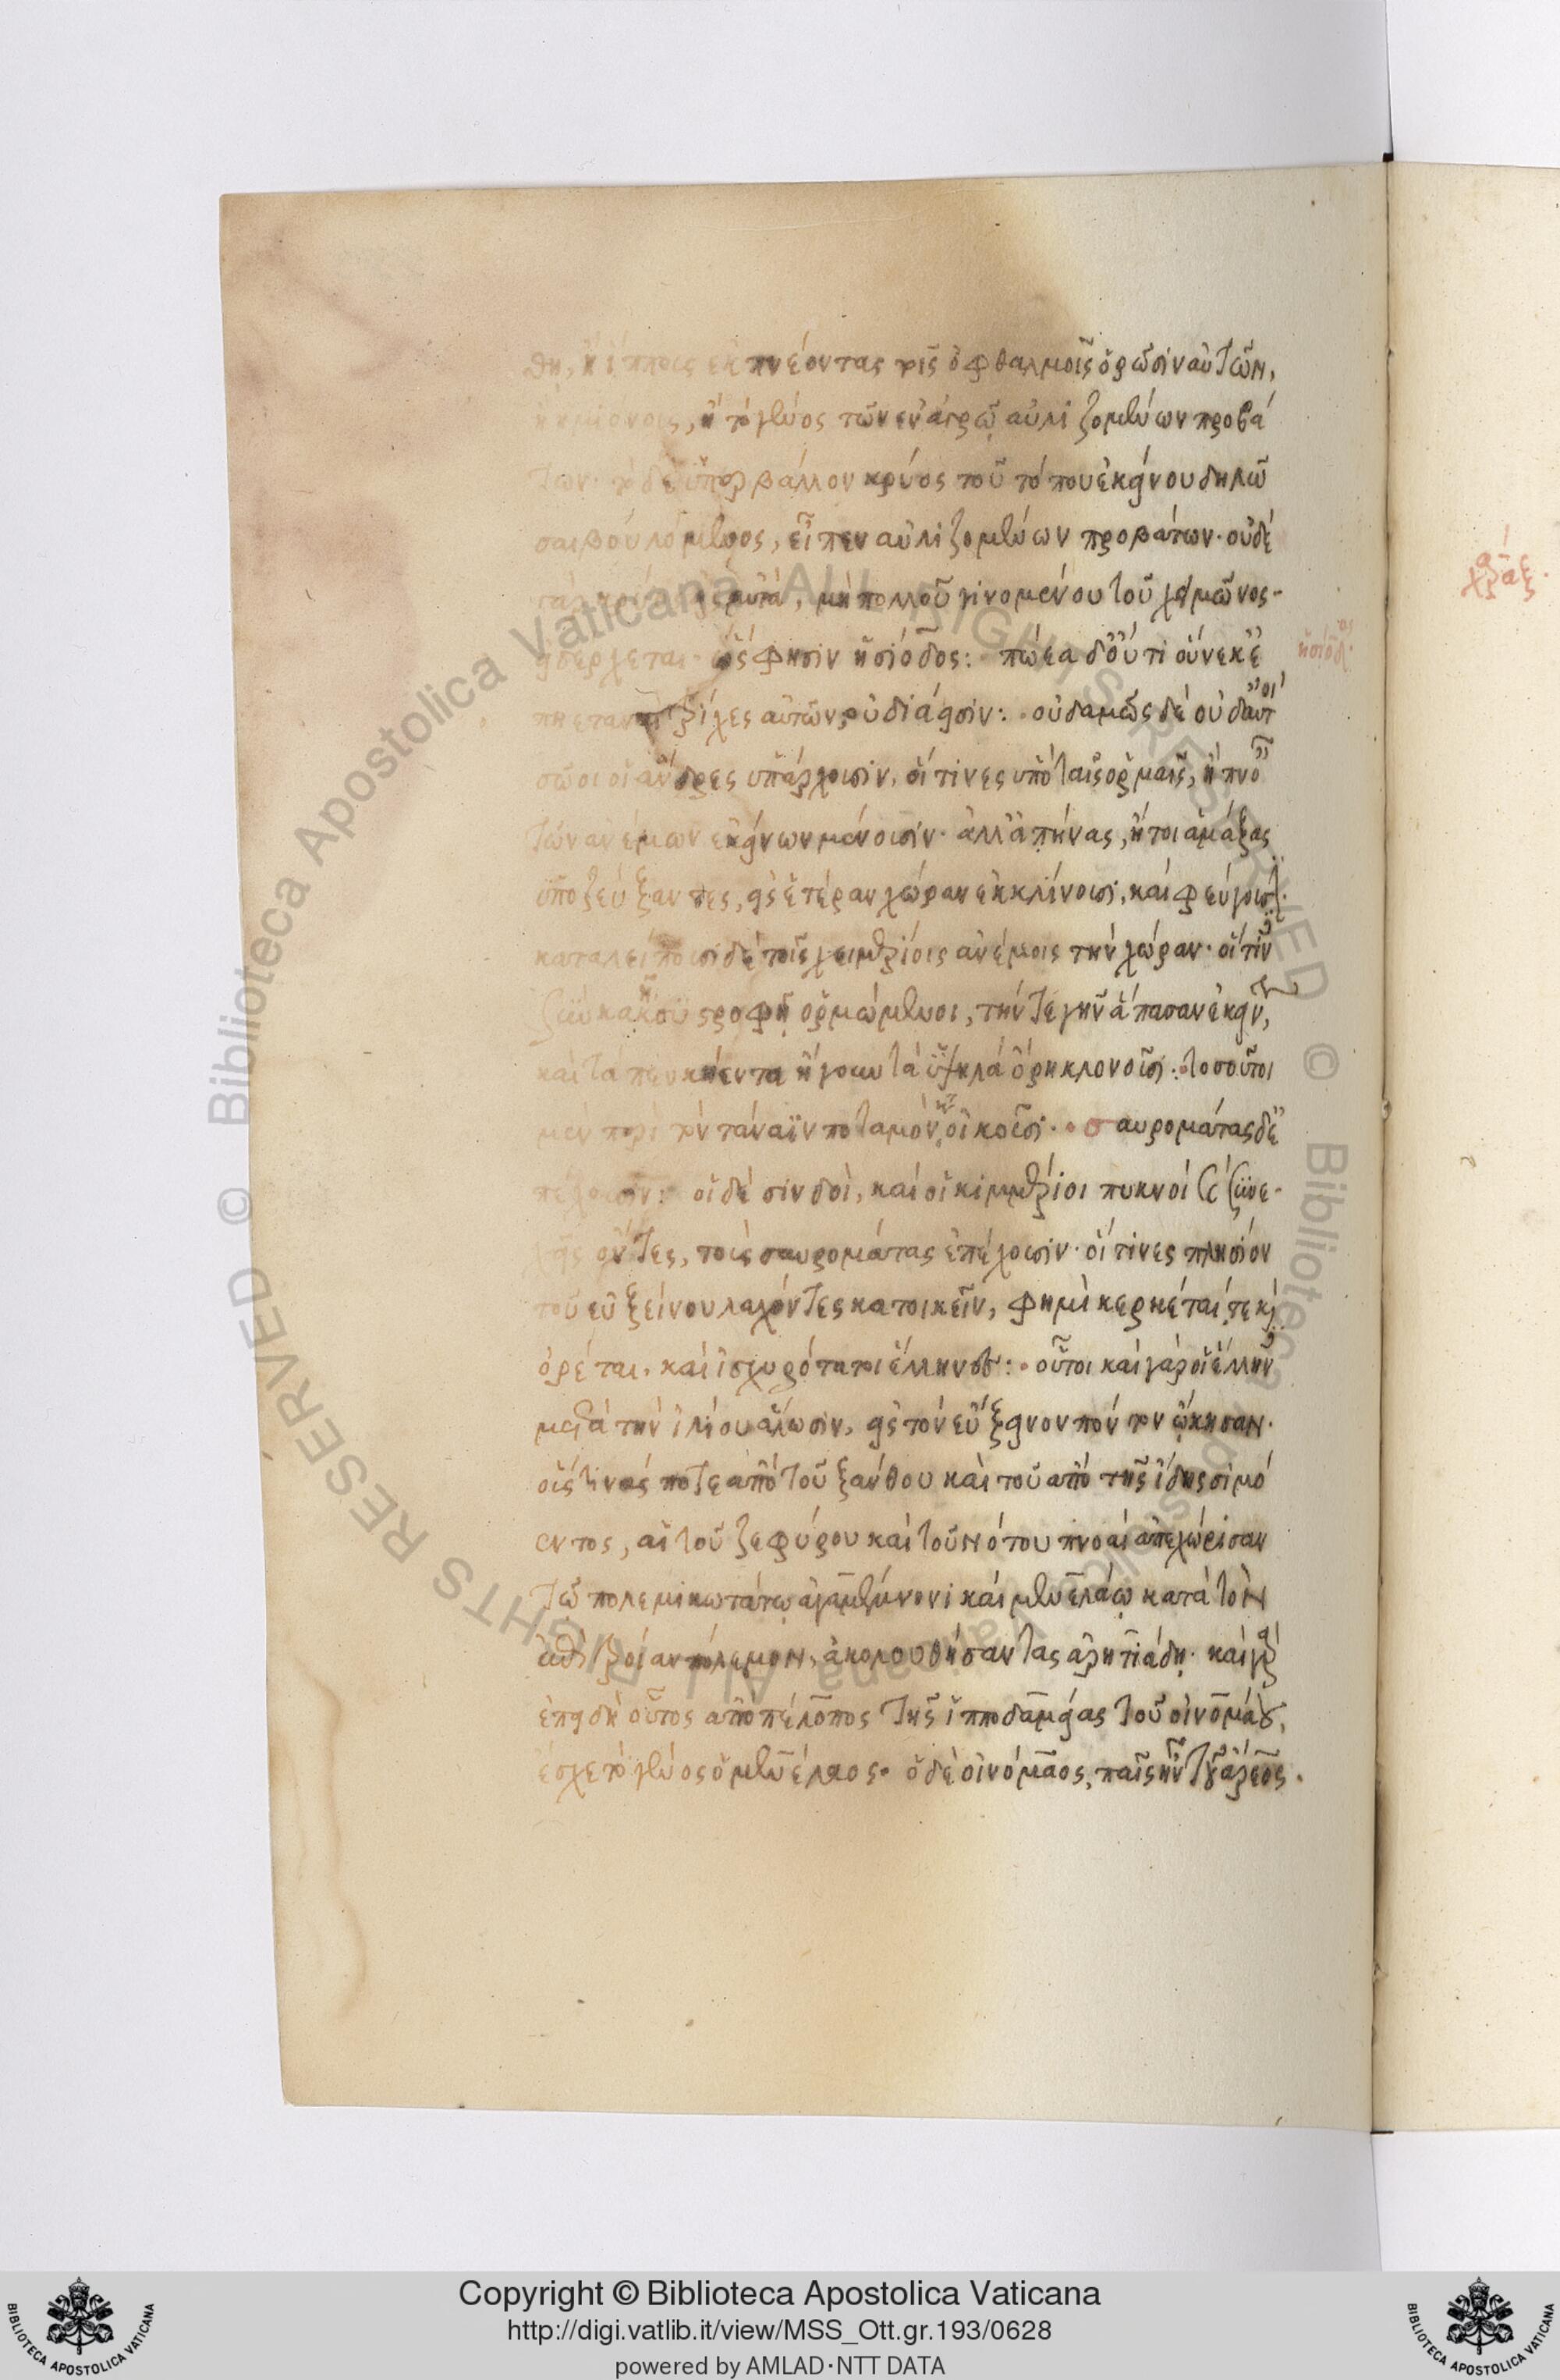 θη, ἢ ἵππους ἐκπνέοντας τοῖς ὀφθαλμοῖς ὁρῶσιν αὐτῶν,
ἢ ἡμιόνους, ἢ τὸ γένος τῶν ἐν ἀγρῷ αὐλιζομένων προβά
των· τὸ δὲ ὑπερβάλλον κρύος τοῦ τόπου ἐκείνου δηλῶ
σαι βουλόμενος, εἶπεν αὐλιζομένων προβάτων· οὐδὲ
μὴ πολλοῦ γινομένου τοῦ χειμῶνος
εἰσέρχεται· ὥς φησιν ἡσίοδος: πώεα δ' οὔτι οὕνεκ' ἐ
πηεταναὶ τρίχες αὐτῶν, οὐ διάησιν: οὐδαμῶς δὲ οὐδ' αὐτοὶ
σῶοι οἱ ἄνδρες ὑπάρχουσιν, οἵτινες ὑπὸ ταῖς ὁρμαῖς, ἢ πνο
τῶν ἀνέμων ἐκείνων μένουσιν· ἀλλ' ἀπήνας, ἤτοι ἁμάξας
ὑποζεύξαντες, εἰς ἑτέραν χώραν ἐκκλίνουσι, καὶ φεύγουσι.
καταλείπουσι δὲ τοῖς χειμερίοις ἀνέμοις τὴν χώραν· οἵτινες
σὺν κακῇ συστροφῇ ὁρμώμενοι, τήν τε γῆν ἅπασαν ἐκείνην,
καὶ τὰ πευκήεντα ἤγουν τὰ ὑψηλὰ ὄρη κλονοῦσι: τοσοῦτοι
μὲν περὶ τὸν τάναϊν ποταμὸν οἰκοῦσι· σαυρομάτας δ' ἐ
πέχουσιν: οἱ δὲ σίνδοι, καὶ οἱ κιμμέριοι πυκνοὶ καὶ συνε
χεῖς ὄντες, τοὺς σαυρομάτας ἐπέχουσιν· οἵτινες πλησίον
τοῦ εὐξείνου λαχόντες κατοικεῖν, φημὶ κερκέται τε καὶ
ὀρέται, καὶ ἰσχυρότατοι ἕλληνες: οὗτοι καὶ γὰρ οἱ ἕλληνες
μετὰ τὴν ἰλίου ἅλωσιν, εἰς τὸν εὔξεινον πόντον ᾤκησαν.
οὕς τινάς ποτε ἀπὸ τοῦ ξάνθου καὶ τοῦ ἀπὸ τῆς ἴδης σιμό
εντος, αἱ τοῦ ζεφύρου καὶ τοῦ νότου πνοαὶ ἀπεχώρισαν
τῷ πολεμικωτάτῳ ἀγαμέμνονι καὶ μενελάῳ κατὰ τὸν
πόλεμον, ἀκολουθήσαντας ἀρητιάδη· καὶ γὰρ
ἐπειδὴ οὗτος ἀπὸ πέλοπος τῆς ἱπποδαμείας τοῦ οἰνομάου,
ἔσχε τὸ γένος ὁ μενέλαος· ὁ δὲ οἰνόμαος, παῖς ἦν τοῦ ἄρεος.
ἡσιόδος
Copyright © Biblioteca Apostolica Vaticana
http://digi.vatlib.it/view/MSS_Ott.gr.193/0628
powered by AMLAD·NTT DATA
BIBLIOTECA APOSTOLICA VATICANA
BIBLIOTECA APOSTOLICA VATICANA
© Biblioteca Apostolica Vaticana ALL RIGHTS RESERVED © Biblioteca Apostolica Vaticana ALL RIGHTS RESERVED